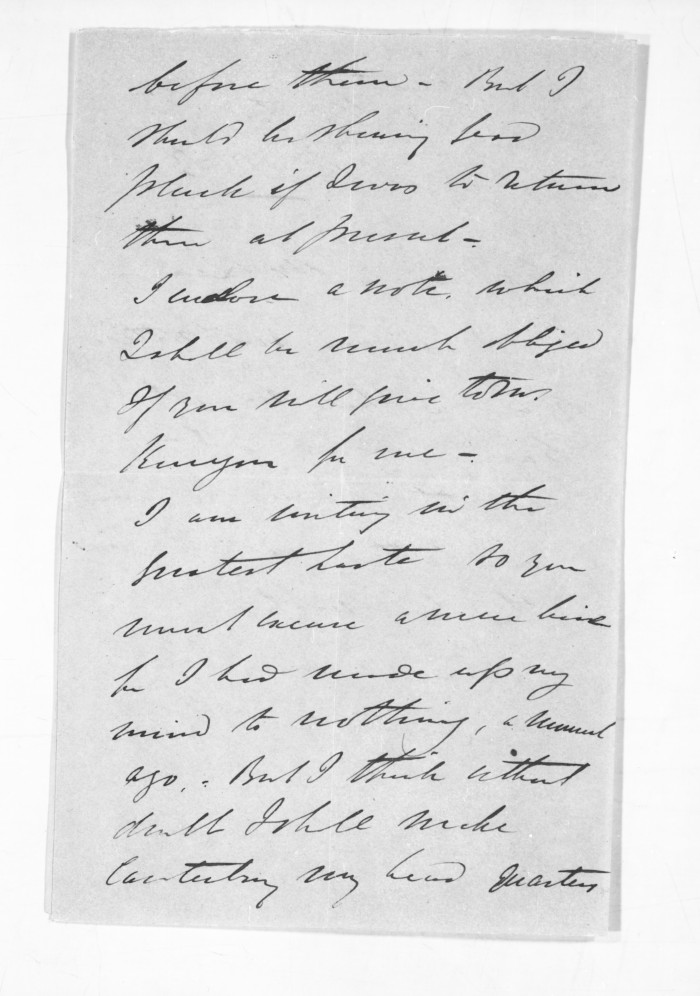 before them - But I
should be showing bad
pluck if I was to return
there at present -
I enclose a note, which
I shall be much obliged
If you will give to Mr.
Kenyon for me -
I am writing in the
greatest haste so you
must excuse a mere line
for I had made up my
mind to nothing, a moment
ago. - But I think without
doubt I shall make
Canterbury my head quarters